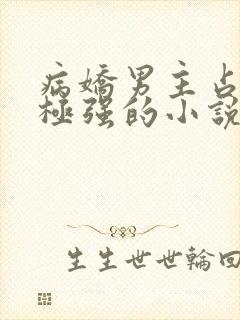 病嬌男主占
極强的小說
生生世世輪回